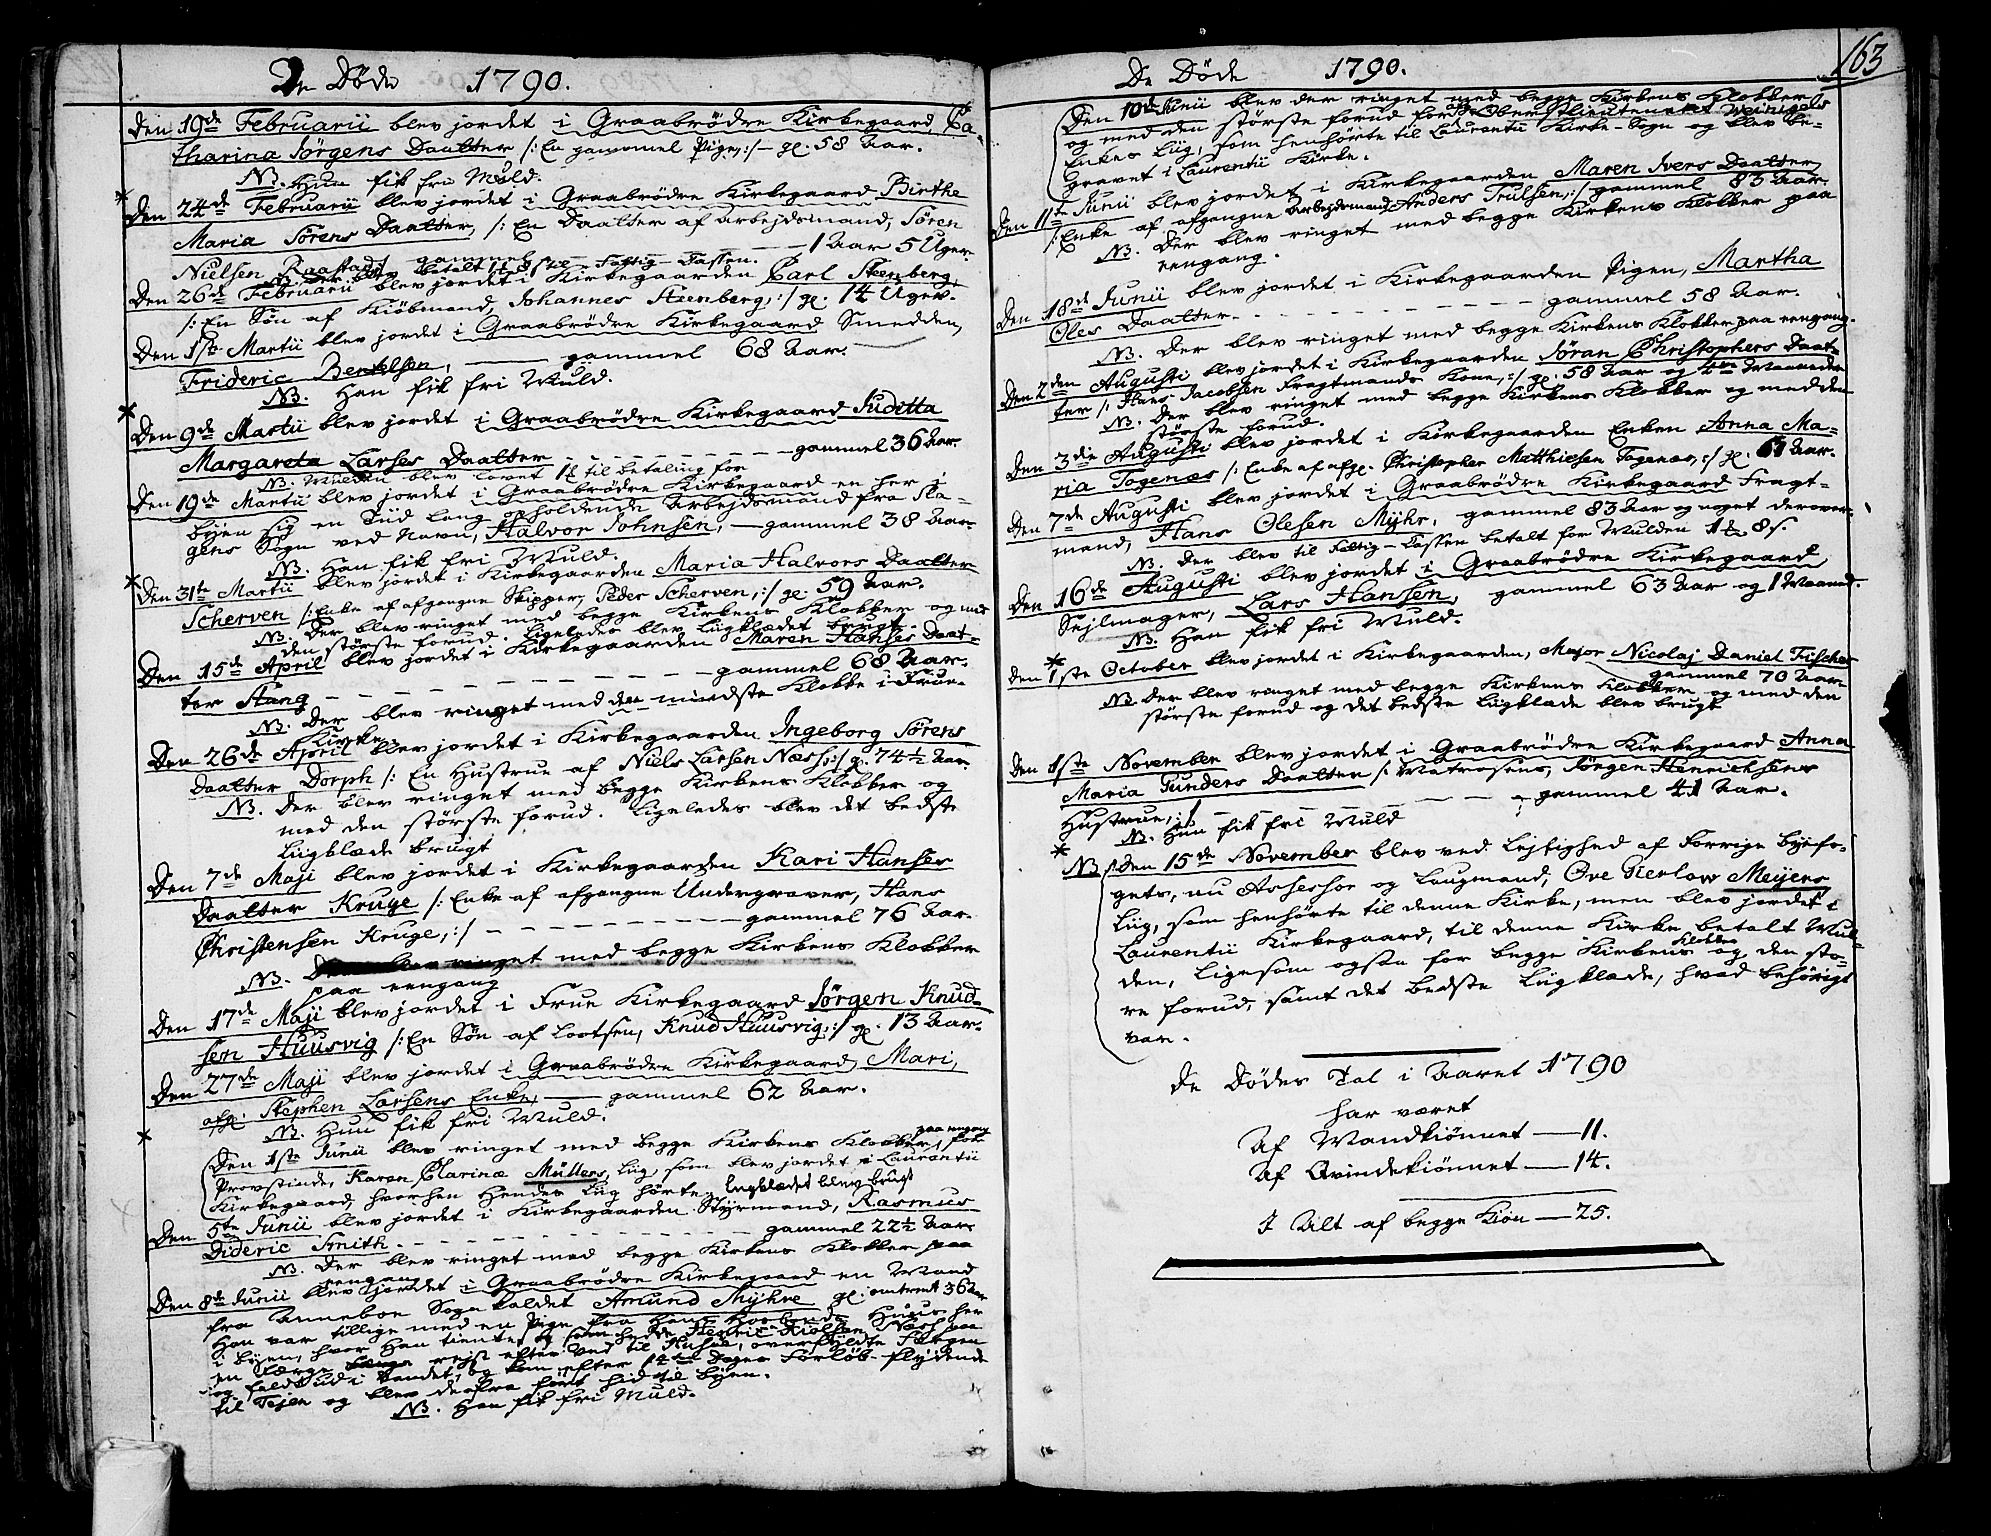 De Døde 1790.
Den 19de Februarii blev jordet i Graabrødre Kirkegaard Ca-
tharina Jørgens Daatter /: En gammel Pige, :/ gl. 58 Aar.
NB. Hun fik fri Muld.
Den 24de Februarii blev jordet i Graabrødre Kirkegaard Birthe
Maria Sørens Daatter, /: En Daatter af Arbejdsmand, Søren
Nielsen Raastad, gammel — 1 Aar 5 Uger
NB. Der blev betalt til Fattig-Cassen.
Den 26de Februarii blev jordet i Kirkegaarden Carl Steenberg,
/: En Søn af Kiøbmand, Johannes Steenberg, :/ gl. 14 Uger.
Den 1ste Martii blev jordet i Graabrødre Kirkegaard Smedden,
Frideric Bentelsen, — gammel 68 Aar.
NB. Han fik fri Muld.
Den 9de Martii blev jordet i Graabrødre Kirkegaard Juditta
Margareta Larses Daatter - - - gammel 36 Aar.
NB. Mulden blev lovet til betaling for
Den 19de Martii blev jordet i Graabrødre Kirkegaard en her i
byen sig en Tiid lang opholdende Arbejdsmand fra Sla-
gens Sogn ved Navn, Halvor Johnsen, — gammel 38 Aar.
NB. Han fik fri Muld.
Den 31te Martii blev jordet i Kirkegaarden Maria Halvors Daatter
Scherven /: Enke af afgangne Skipper, Peder Scherven, :/ gl. 59 Aar.
NB. Der blev ringet med begge Kirkens Klokker og med
den største forud. Ligeledes blev Liigklædet brugt.
Den 15de April blev jordet i Kirkegaarden Maren Hanses Daat-
ter Stang - - - gammel 68 Aar.
NB. Der blev ringet med den mindste Klokke i Frue-
Kirke.
Den 26de April blev jordet i Kirkegaarden Ingeborg Sørens
Daatter Dorph /: En Hustrue af Niels Larsen Næss :/ gl. 74½ Aar.
NB. Der blev ringet med begge Kirkens Klokker og
med den største forud. Ligeledes blev det bedste
Liigklæde brugt
Den 7de Maji blev jordet i Kirkegaarden Kari Hanses
Daatter Kruge /: Enke af afgangne Undergraver, Hans
Christensen Kruge, :/ - - - gammel 76 Aar.
NB. Der blev ringet med begge Kirkens Klokker
paa eengang
Den 17de Maji blev jordet i Frue Kirkegaard Jørgen Knud-
sen Huusvig /: En Søn af Lootsen, Knud Huusvig, :/ gl. 13 Aar.
Den 27de Maji blev jordet i Graabrødre Kirkegaard Mari,
afg: Stephen Larsens Enke, — gammel 62 Aar.
NB. Hun fik fri Muld.
Den 1ste Junii blev ringet med begge Kirkens Klokker paa engang for
Provstinde, Karen Clarinæ Müllers, Liig, som blev jordet i Laurentii
Kirkegaard, hvorhen Hendes Liig hørte. Liigklædet blev brugt
Den 5te Junii blev jordet i Kirkegaarden Styrmand, Rasmus
Dideric Smith. - - - gammel 22½ Aar
NB. Der blev ringet med begge Kirkens Klokker paa
eengang
Den 8de Junii blev jordet i Graabrødre Kirkegaard en Mand
fra Annebøe Sogn kaldet Amund Myhre gl: omtrent 36 Aar
Han var tillige med en Pige fra Hans Huus her
i byen, hvor Han tiente, og som hedde Næss paa
en Færge rejst efter Ved til Husøe, overskyldte Færgen
og faldt ud i Vandet, og kom efter 14 Dages Forløb flydende
til Tejen og blev derfra ført hid til byen.
NB. Han fik fri Muld.
De Døde 1790.
163
Den 10de Junii blev der ringet med begge Kirkens Klokker
og med den største forud for afg: Oberstlieutenant Weinigels
Enkes Liig, som henhørte til Laurentii Kirke-Sogn og blev be-
gravet i Laurentii Kirke.
Den 11te Junii blev jordet i Kirkegaarden Maren Ivers Daatter
/: Enke af afgangne Arbejdsmand, Anders Trulsen, :/ gammel 83 Aar
NB. Der blev ringet med begge Kirkens Klokker paa
eengang.
Den 18de Junii blev jordet i Kirkegaarden Pigen, Martha
Oles Daatter. - - - gammel 58 Aar.
NB. Der blev ringet med begge Kirkens Klokker paa eengang.
Den 2den Augusti blev jordet i Kirkegaarden Jøran Christophers Daat-
ter /: Hans Jacobsen Fragtmands Kone, :/ gl. 58 Aar og 4re Maaneder
NB. Der blev ringet med begge Kirkens Klokker og med den
største forud.
Den 3die Augusti blev jordet i Kirkegaarden Enken Anna Ma-
ria Togenæs /: Enke af afg. Christopher Matthiesen Togenæs, :/ gl. 61 Aar.
Den 7de Augusti blev jordet i Graabrødre Kirkegaard Fragt-
mand, Hans Olesen Myhr, gammel 83 Aar og noget derover.
NB. Der blev til Fattig-Cassen betalt for Mulden 1 8 s.
Den 16de Augusti blev jordet i Graabrødre Kirkegaard
Sejlmager, Lars Hansen, gammel 63 Aar og 1 Maaned.
NB. Han fik fri Muld.
Den 1ste October blev jordet i Kirkegaarden, Major Nicolaj Daniel Fischer
gammel 70 Aar
NB. Der blev ringet med begge Kirkens Klokker og med den
største forud og det bedste Liigklæde blev brugt
Den 1ste November blev jordet i Graabrødre Kirkegaard Anna
Maria Gunders Daatter /: Matrosens, Jørgen Henrichsens
Hustrue, :/ - - - gammel 41 Aar.
NB. Hun fik fri Muld
NB. Den 15de November blev ved Lejlighed af Forrige Byefo-
gets, nu Assessor og Laugmand, Ove Gierlow Meijers
Liig, som henhørte til denne Kirke, men blev jordet i
Laurentii Kirkegaard, til denne Kirke betalt Mul-
den, Ligesom ogsaa for begge Kirkens Klokker og den stø-
re forud, samt det bedste Liigklæde, hvad behørigt
var.
De Dødes Tal i Aaret 1790
har været
Af Mandkiønnet — 11.
Af Qvindekiønnet — 14.
I Alt af begge Kiøn — 25.